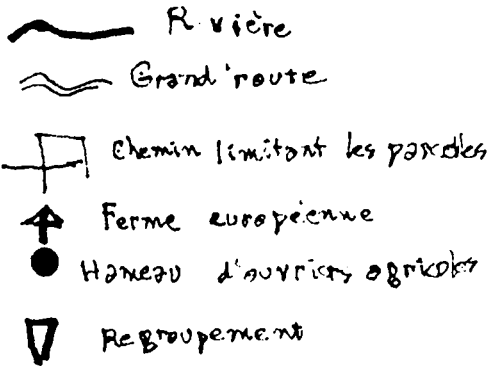 Rivière
Grand'route
Chemin limitant les parcelles
Ferme européenne
Hameau d'ouvriers agricoles
Regroupement